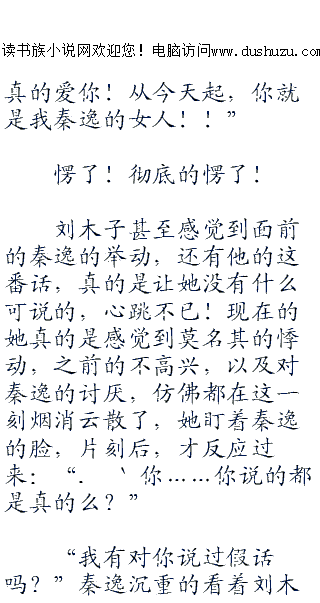 读书族小说网欢迎您！电脑访问www.dushuzu.com
真的爱你！从今天起，你就
是我秦逸的女人！！”
愣了！彻底的愣了！
刘木子甚至感觉到面前
的秦逸的举动，还有他的这
番话，真的是让她没有什么
可说的，心跳不已！现在的
她真的是感觉到莫名其的悸
动，之前的不高兴，以及对
秦逸的讨厌，仿佛都在这一
刻烟消云散了，她盯着秦逸
的脸，片刻后，才反应过
来：“．｀你……你说的都
是真的么？”
“我有对你说过假话
吗？”秦逸沉重的看着刘木